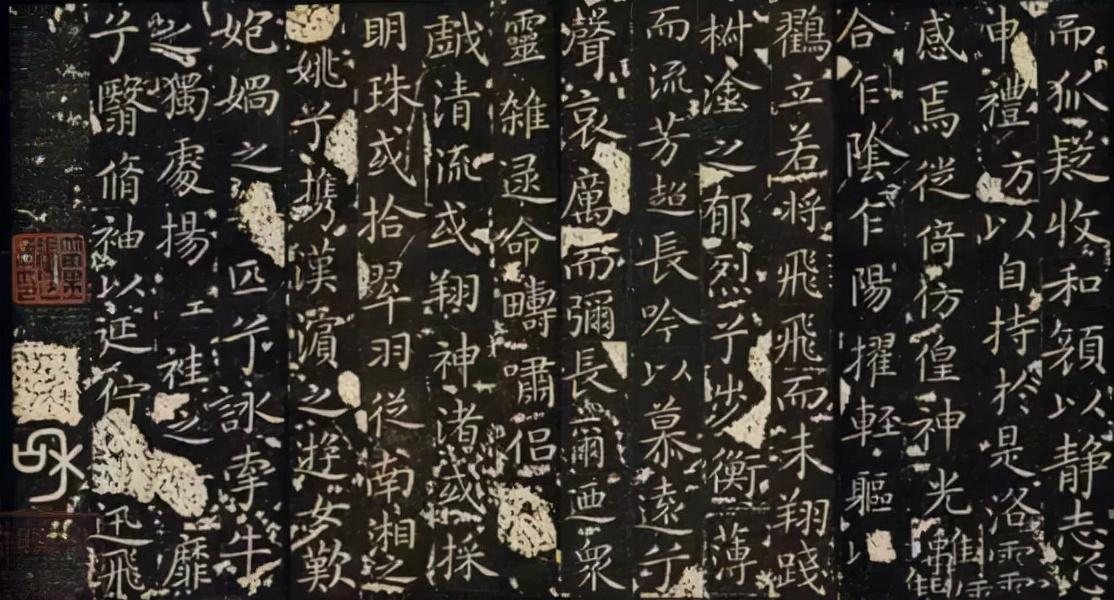 而狐疑收和顏以靜志兮
申禮方以自持於是洛靈
感焉徙倚仿徨神光離
合乍陰乍陽擢輕軀以
鶴立若將飛飛而未翔踐
椒塗之郁烈兮步衡薄
而流芳超長吟以慕遠兮
聲哀厲而彌長爾迺眾
靈雜遝命疇嘯侶
戲清流或翔神渚或採
明珠或拾翠羽從南湘之
姚兮攜漢濱之遊女歎
妑媧之匹兮詠牽牛
之獨處揚袿之靡
兮翳脩袖以延佇迅飛